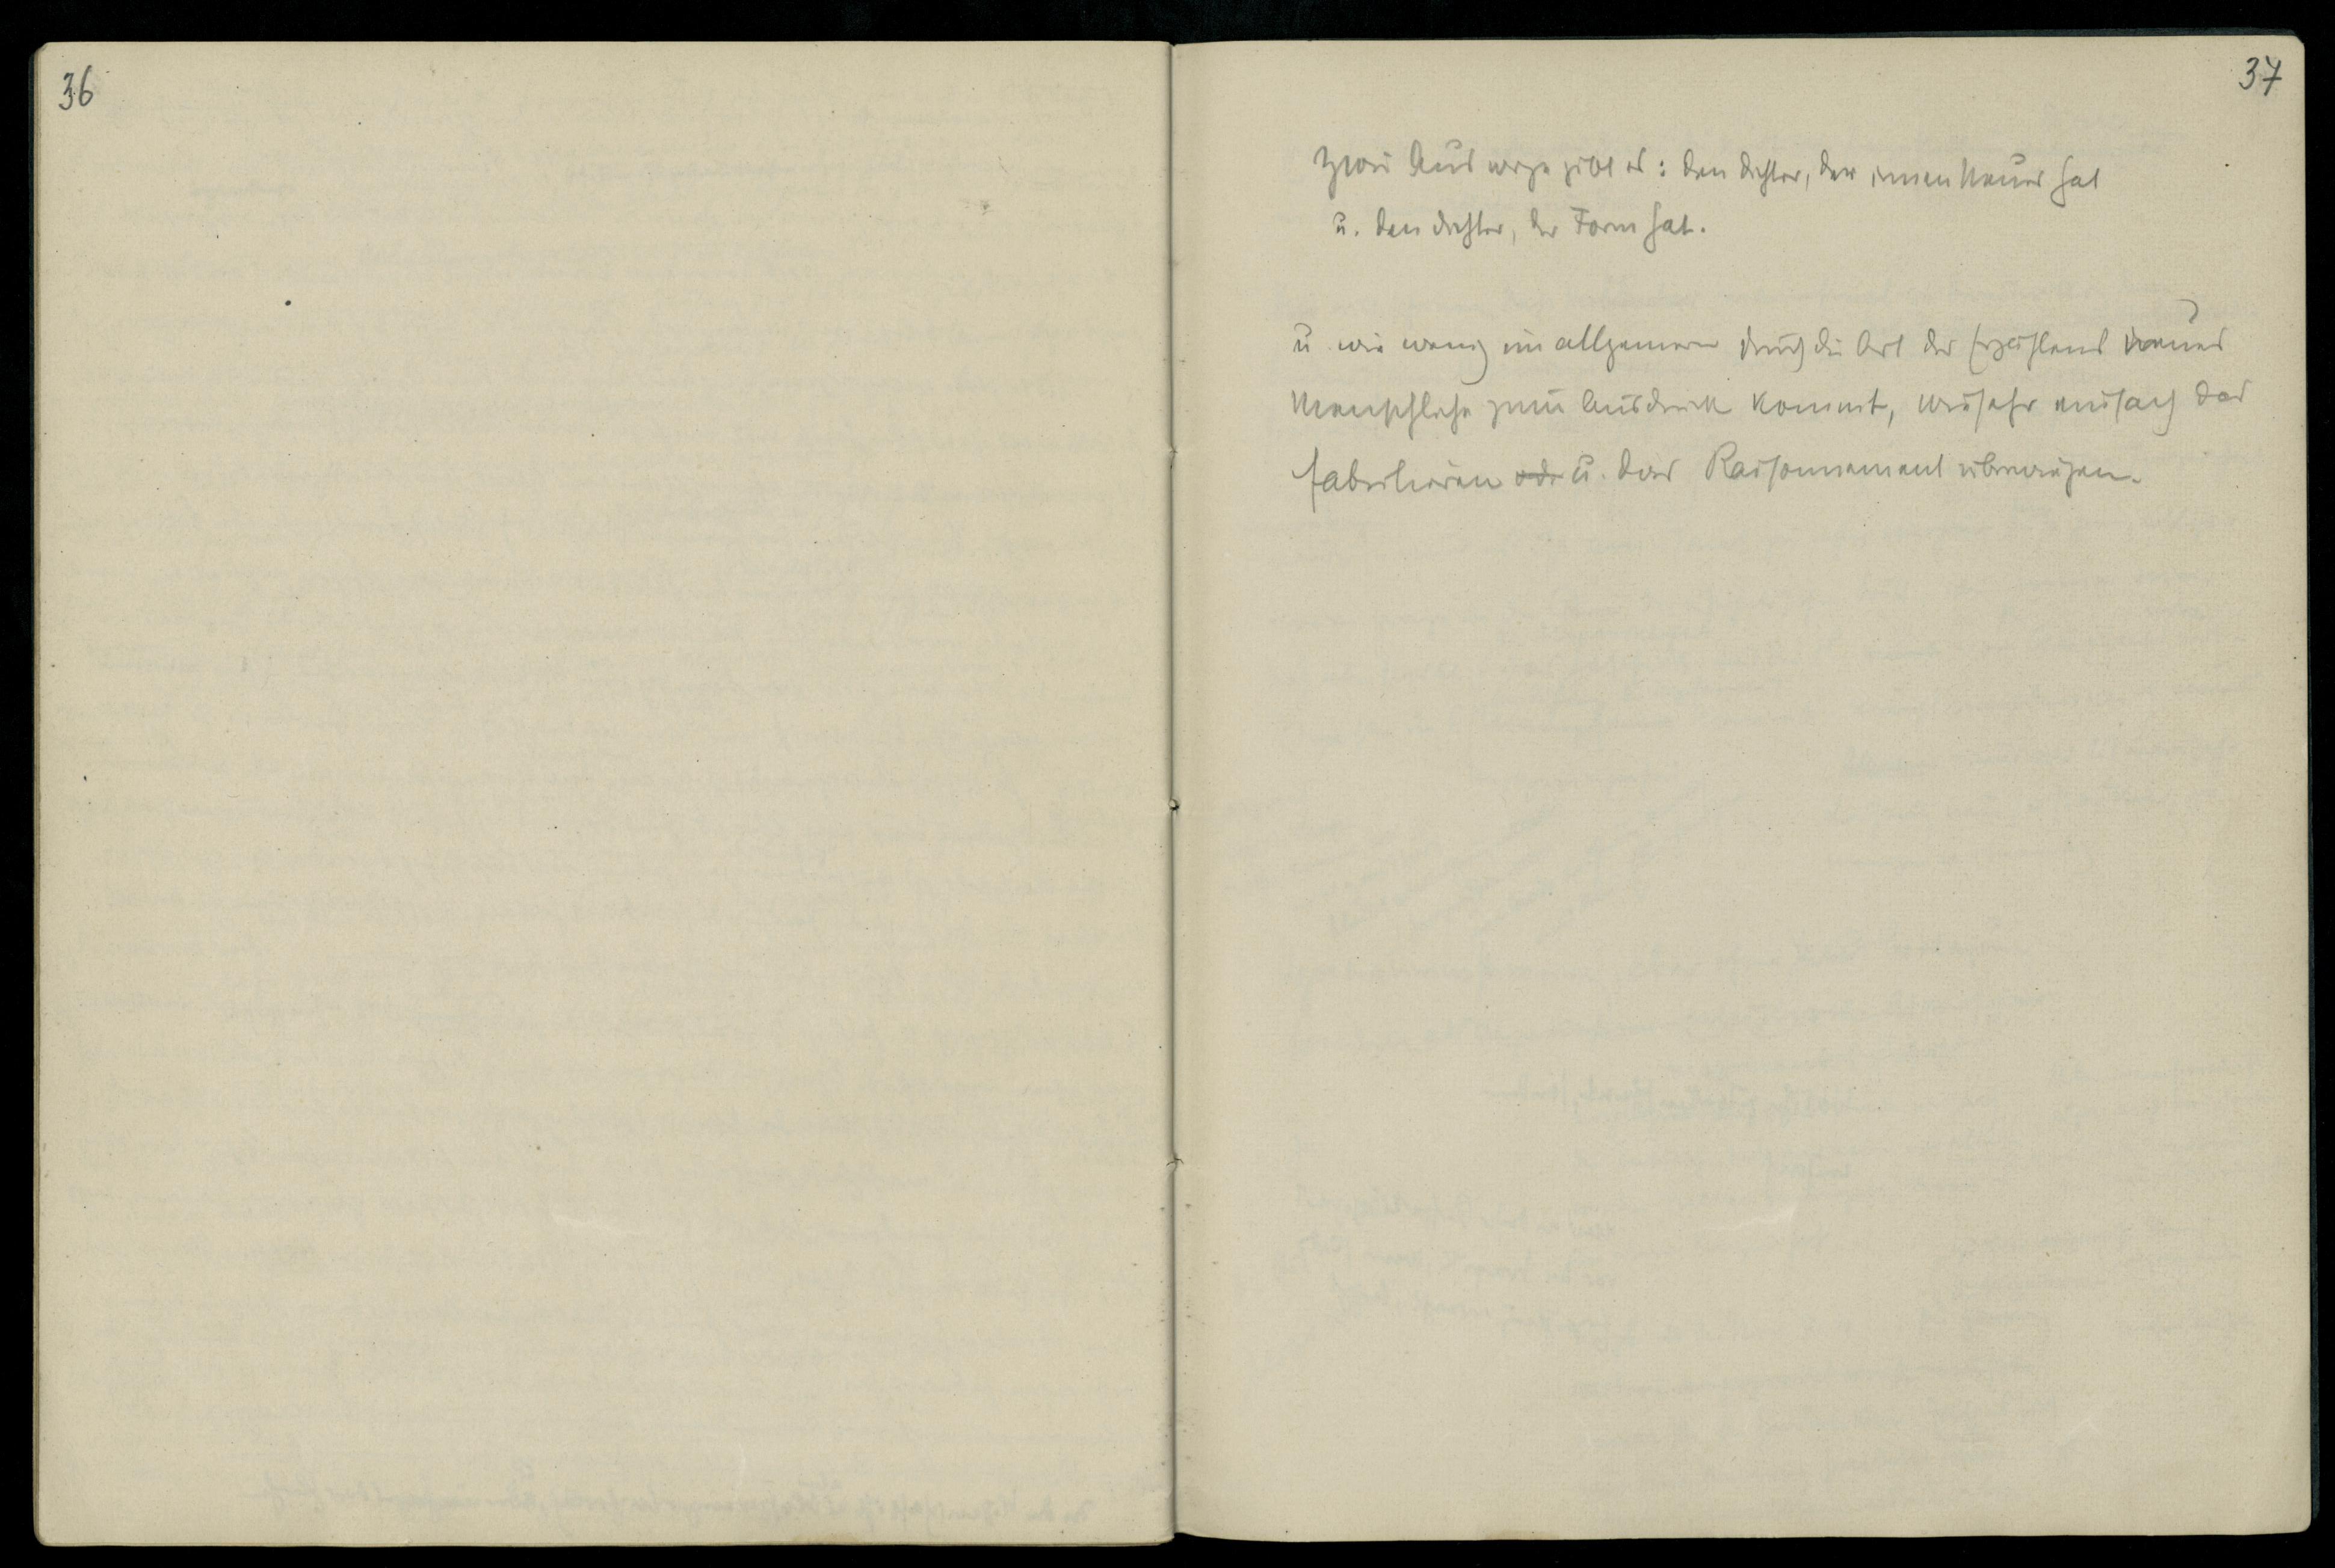 36
37
Zwei Auswege gibt es: den Dichter, der innen Neues hat
u. den Dichter, der Form hat.
u wie wenig im allgemeinen durch die Art des Erzählens neues
Menschliche zum Ausdruck kommt, wie sehr einfach das
Fabulieren od. u. das Raisonnement überwiegen.